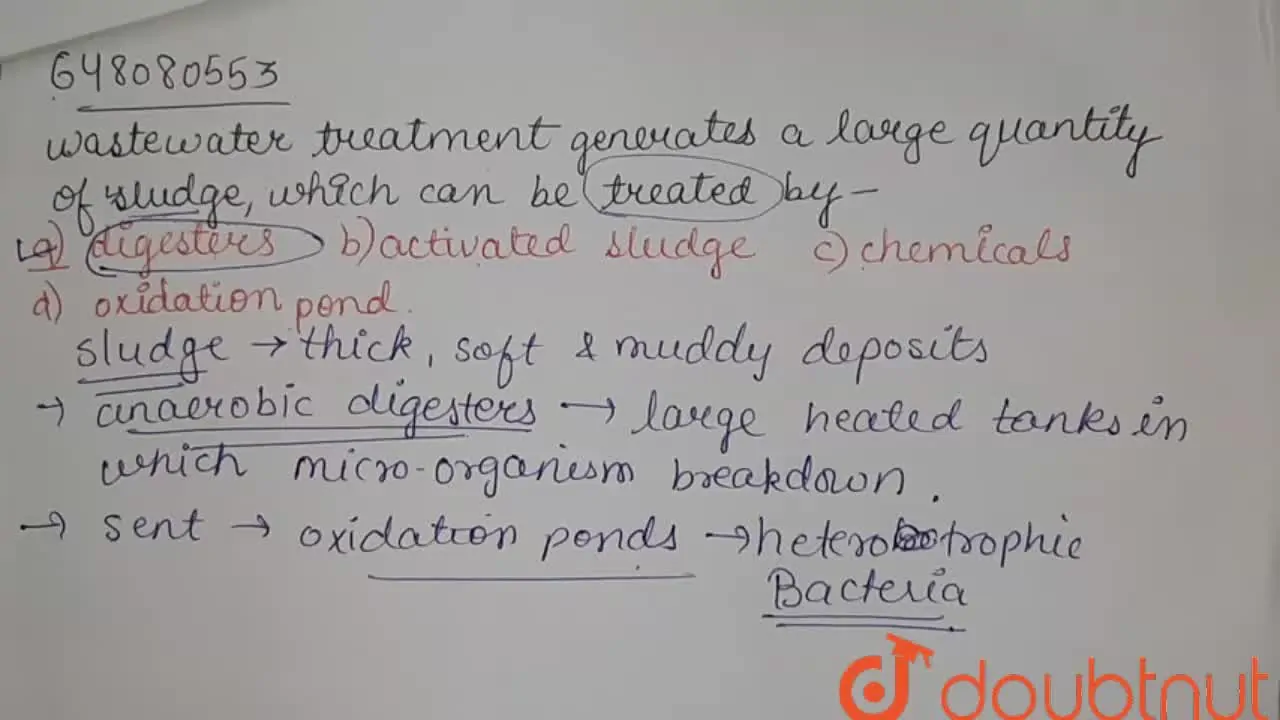 648080553
wastewater treatment generates a large quantity
of sludge, which can be treated by-
a) digesters b) activated sludge c) chemicals
d) oxidation pond.
sludge → thick, soft & muddy deposits
→ anaerobic digesters → large heated tanks in
which micro-organism breakdown.
→ sent → oxidation ponds → heterotrophic
Bacteria
doubtnut